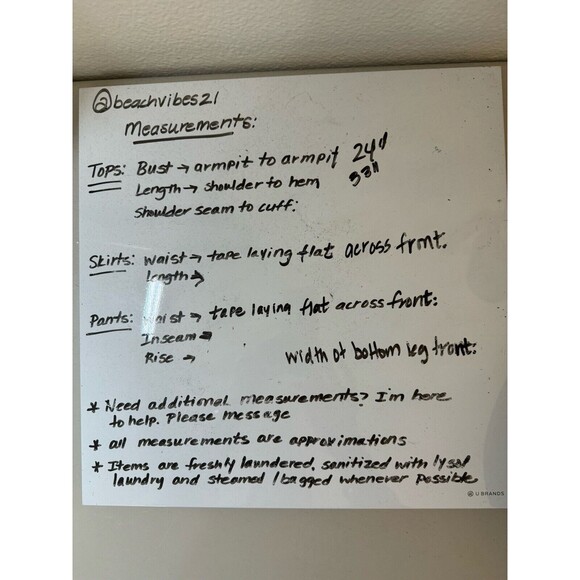 @beachvibes21
Measurements:
Tops: Bust → armpit to armpit 24"
Length → shoulder to hem 33"
Shoulder seam to cuff:
Skirts: waist → tape laying flat across front.
length →
Pants: waist → tape laying flat across front:
Inseam →
Rise → width of bottom leg front:
* Need additional measurements? I'm here
to help. Please message
* all measurements are approximations
* Items are freshly laundered, sanitized with lysol
laundry and steamed / bagged whenever possible
U BRANDS